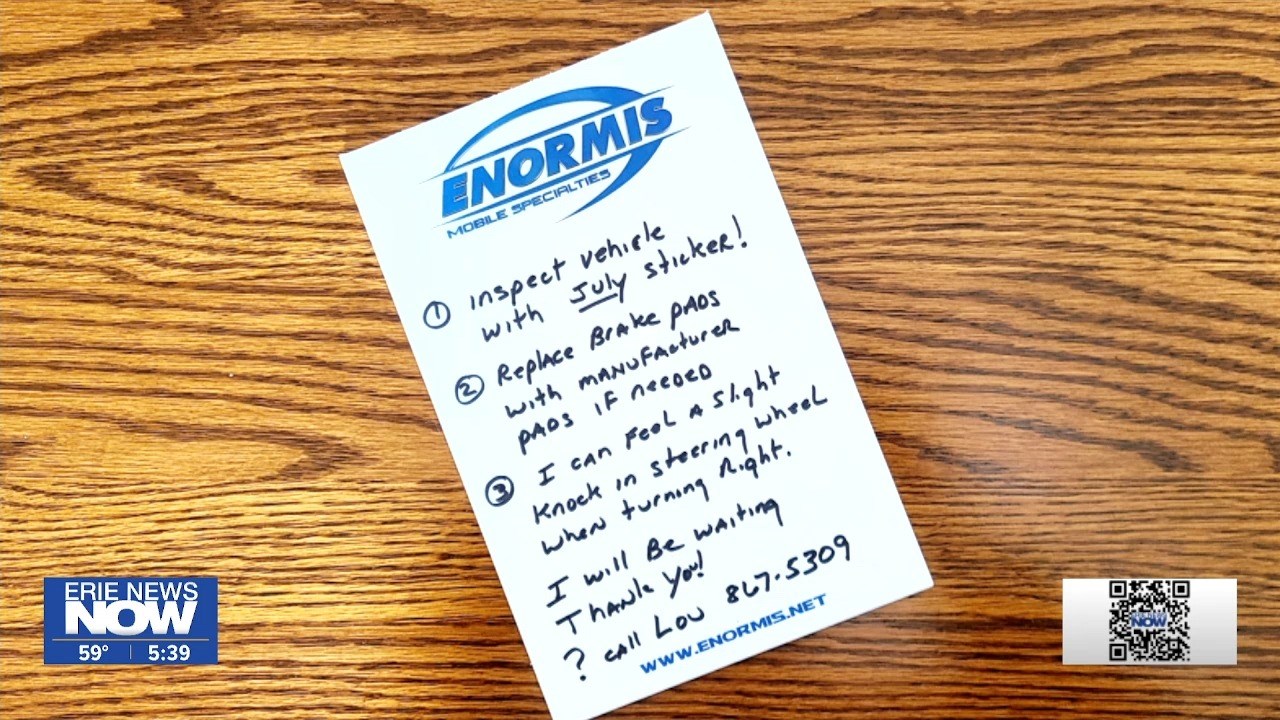 ENORMIS
MOBILE SPECIALTIES
① inspect vehicle
with July sticker!
② Replace Brake pads
with manufacturer
pads if needed
③ I can feel a slight
knock in steering wheel
when turning right.
I will Be waiting
Thank you!
? call Lou 867-5309
WWW.ENORMIS.NET
ERIE NEWS
NOW
59° | 5:39
ERIE NEWS
NOW